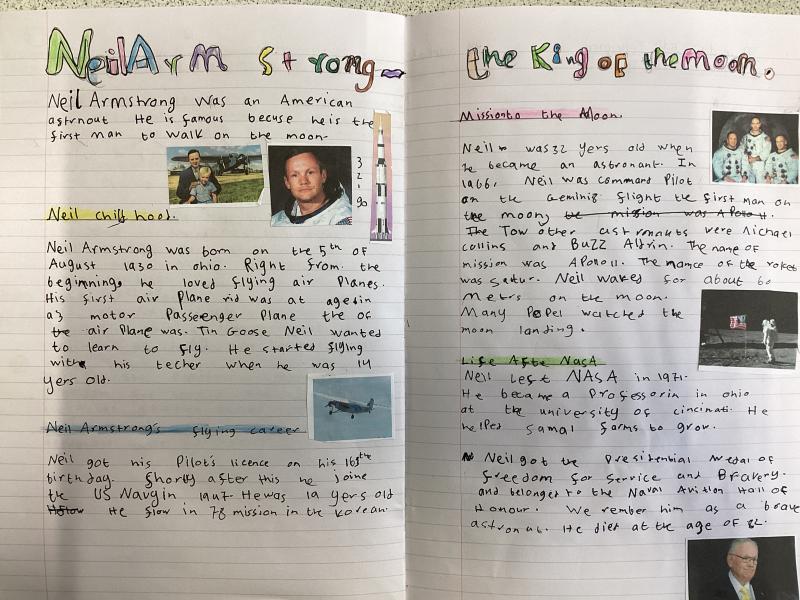 Neil Armstrong
Neil Armstrong was an American
astrnout He is famous becuse he is the
first man to walk on the moon.
3
2.
90
Neil chilf hood.
Neil Armstrong was born on the 5th of
August 1930 in ohio. Right from the
beginning he loved flying air Planes.
His first air Plane rid was at agesin
a3 motor Passenger Plane the of
the air Plane was. Tin Goose Neil wanted
to learn to fly. He started flying
with his techer when he was 14
yers old.
Neil Armstrong's flying career
Neil got his Pilot's licence on his 16th
birthday. Shortly after this he joine
the US Navy in 1947. He was 19 yers old
He flow in 78 mission in the Korean.
the King of the moon.
Mission to the Moon.
Neil was 32 yers old when
he became an astronant. In
1966, Neil was command Pilot
on the Gemini8 flight the first man on
the moon the mission was Apollo 11.
The Tow other astronauts were Michael
collins and Buzz Aldrin. The name of
mission was Apollo 11. The namce of the roket
was Satur. Neil waked for about 60
Metrs on the moon.
Many PePel watched the
moon landing.
Life After NasA
Neil left NASA in 1971.
He became a Professor in ohio
at the university of cincinati. He
helPed samal farms to grow.
Neil got the Presidential Medal of
freedom for service and Bravery.
and belonged to the Naval Avition Hall of
Honour. We rember him as a brave
astronat. He died at the age of 82.